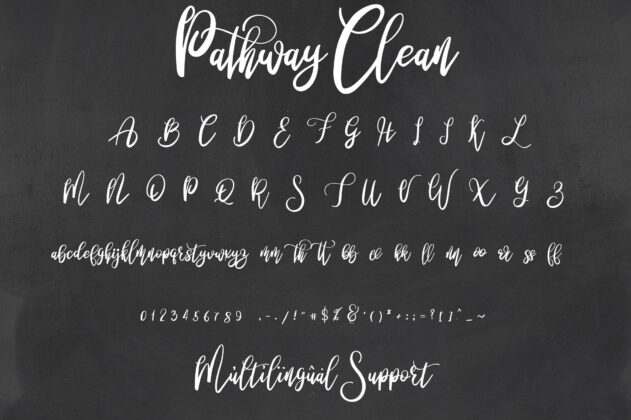 Pathway Clean
A B C D E F G H I J K L
M N O P Q R S T U V W X Y Z
abcdefghijklmnopqrstuvwxyz mm th tt bb ee kk ll nn oo rr ss ff
0123456789 .,-/!"#$%&'()*+:;=?[]^_~
Mùltilingûàl Support